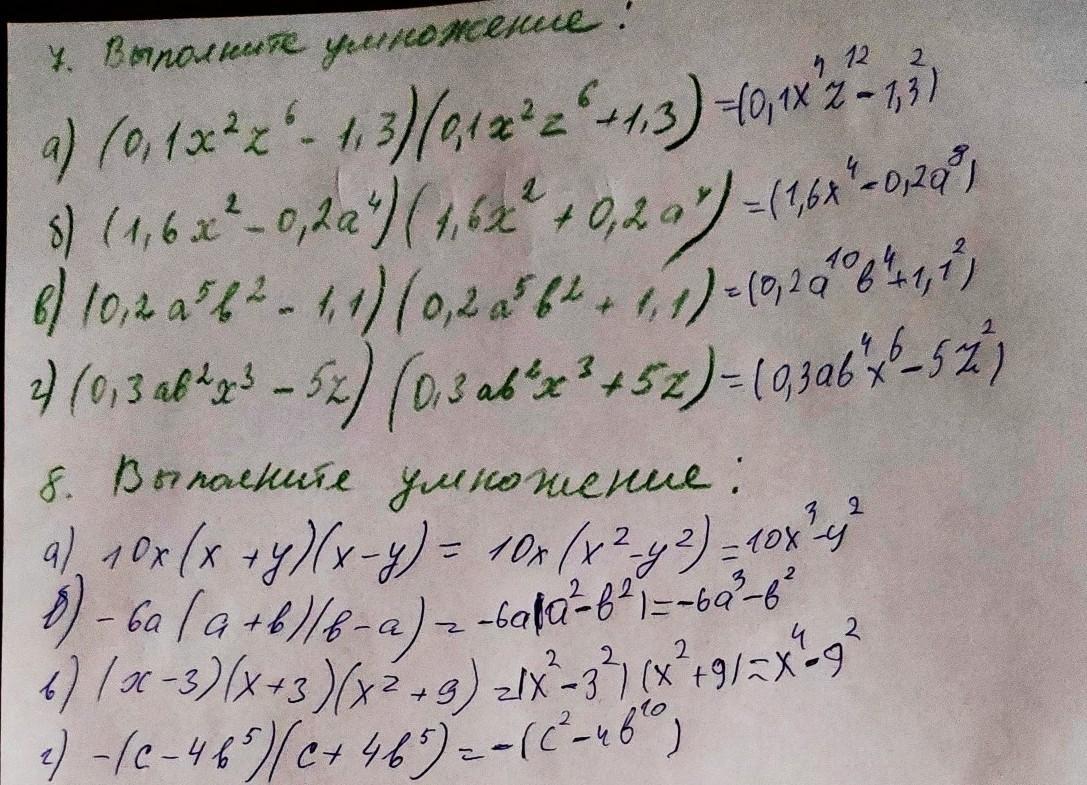 7. Выполните умножение:
а) (0,1x²z⁶ - 1,3)(0,1x²z⁶ + 1,3) = (0,1x⁴z¹² - 1,3²)
б) (1,6x² - 0,2a⁴)(1,6x² + 0,2a⁴) = (1,6x⁴ - 0,2a⁸)
в) (0,2a⁵b² - 1,1)(0,2a⁵b² + 1,1) = (0,2a¹⁰b⁴ + 1,1²)
г) (0,3ab²x³ - 5z)(0,3ab²x³ + 5z) = (0,3ab⁴x⁶ - 5z²)
8. Выполните умножение:
а) 10x(x + y)(x - y) = 10x(x² - y²) = 10x³ - y²
б) - 6a(a + b)(b - a) = -6a(a² - b²) = -6a³ - b²
в) (x - 3)(x + 3)(x² + 9) = (x² - 3²)(x² + 9) = x⁴ - 9²
г) -(c - 4b⁵)(c + 4b⁵) = -(c² - 4b¹⁰)